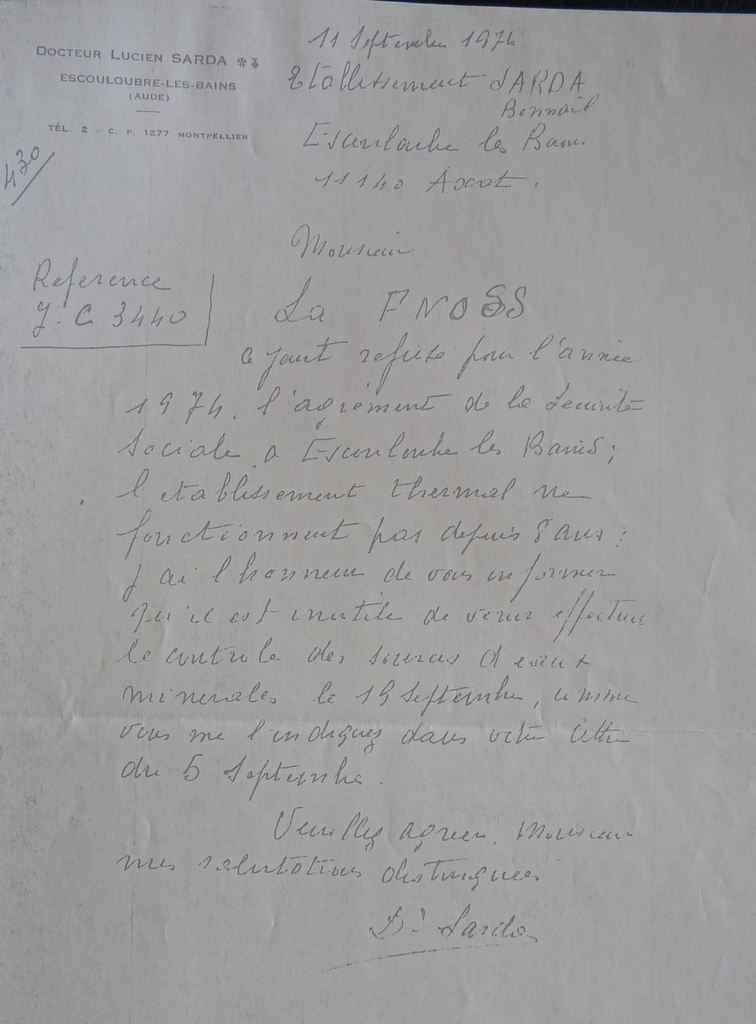 DOCTEUR LUCIEN SARDA
ESCOULOUBRE-LES-BAINS
(AUDE)
TÉL. 2 - C. P. 1277 MONTPELLIER
430
11 Septembre 1974
Etablissement SARDA
Bonnail
Escouloubre les Bains.
11140 Axat.
Reference
J. C 3440
Monsieur
La FNOSS
ayant refuse pour l'année
1974, l'agrément de la Securité
Sociale a Escouloubre les Bains;
l etablissement thermal ne
fonctionnent pas depuis 8 ans:
J ai l honneur de vous informer
qu'il est inutile de venir effectuer
le controle des sources d eaux
minerales le 19 Septembre, comme
vous me l'indiquez dans votre lettre
du 5 Septembre.
Veuillez agreer, Monsieur
mes salutations distinguees
Dr Sarda